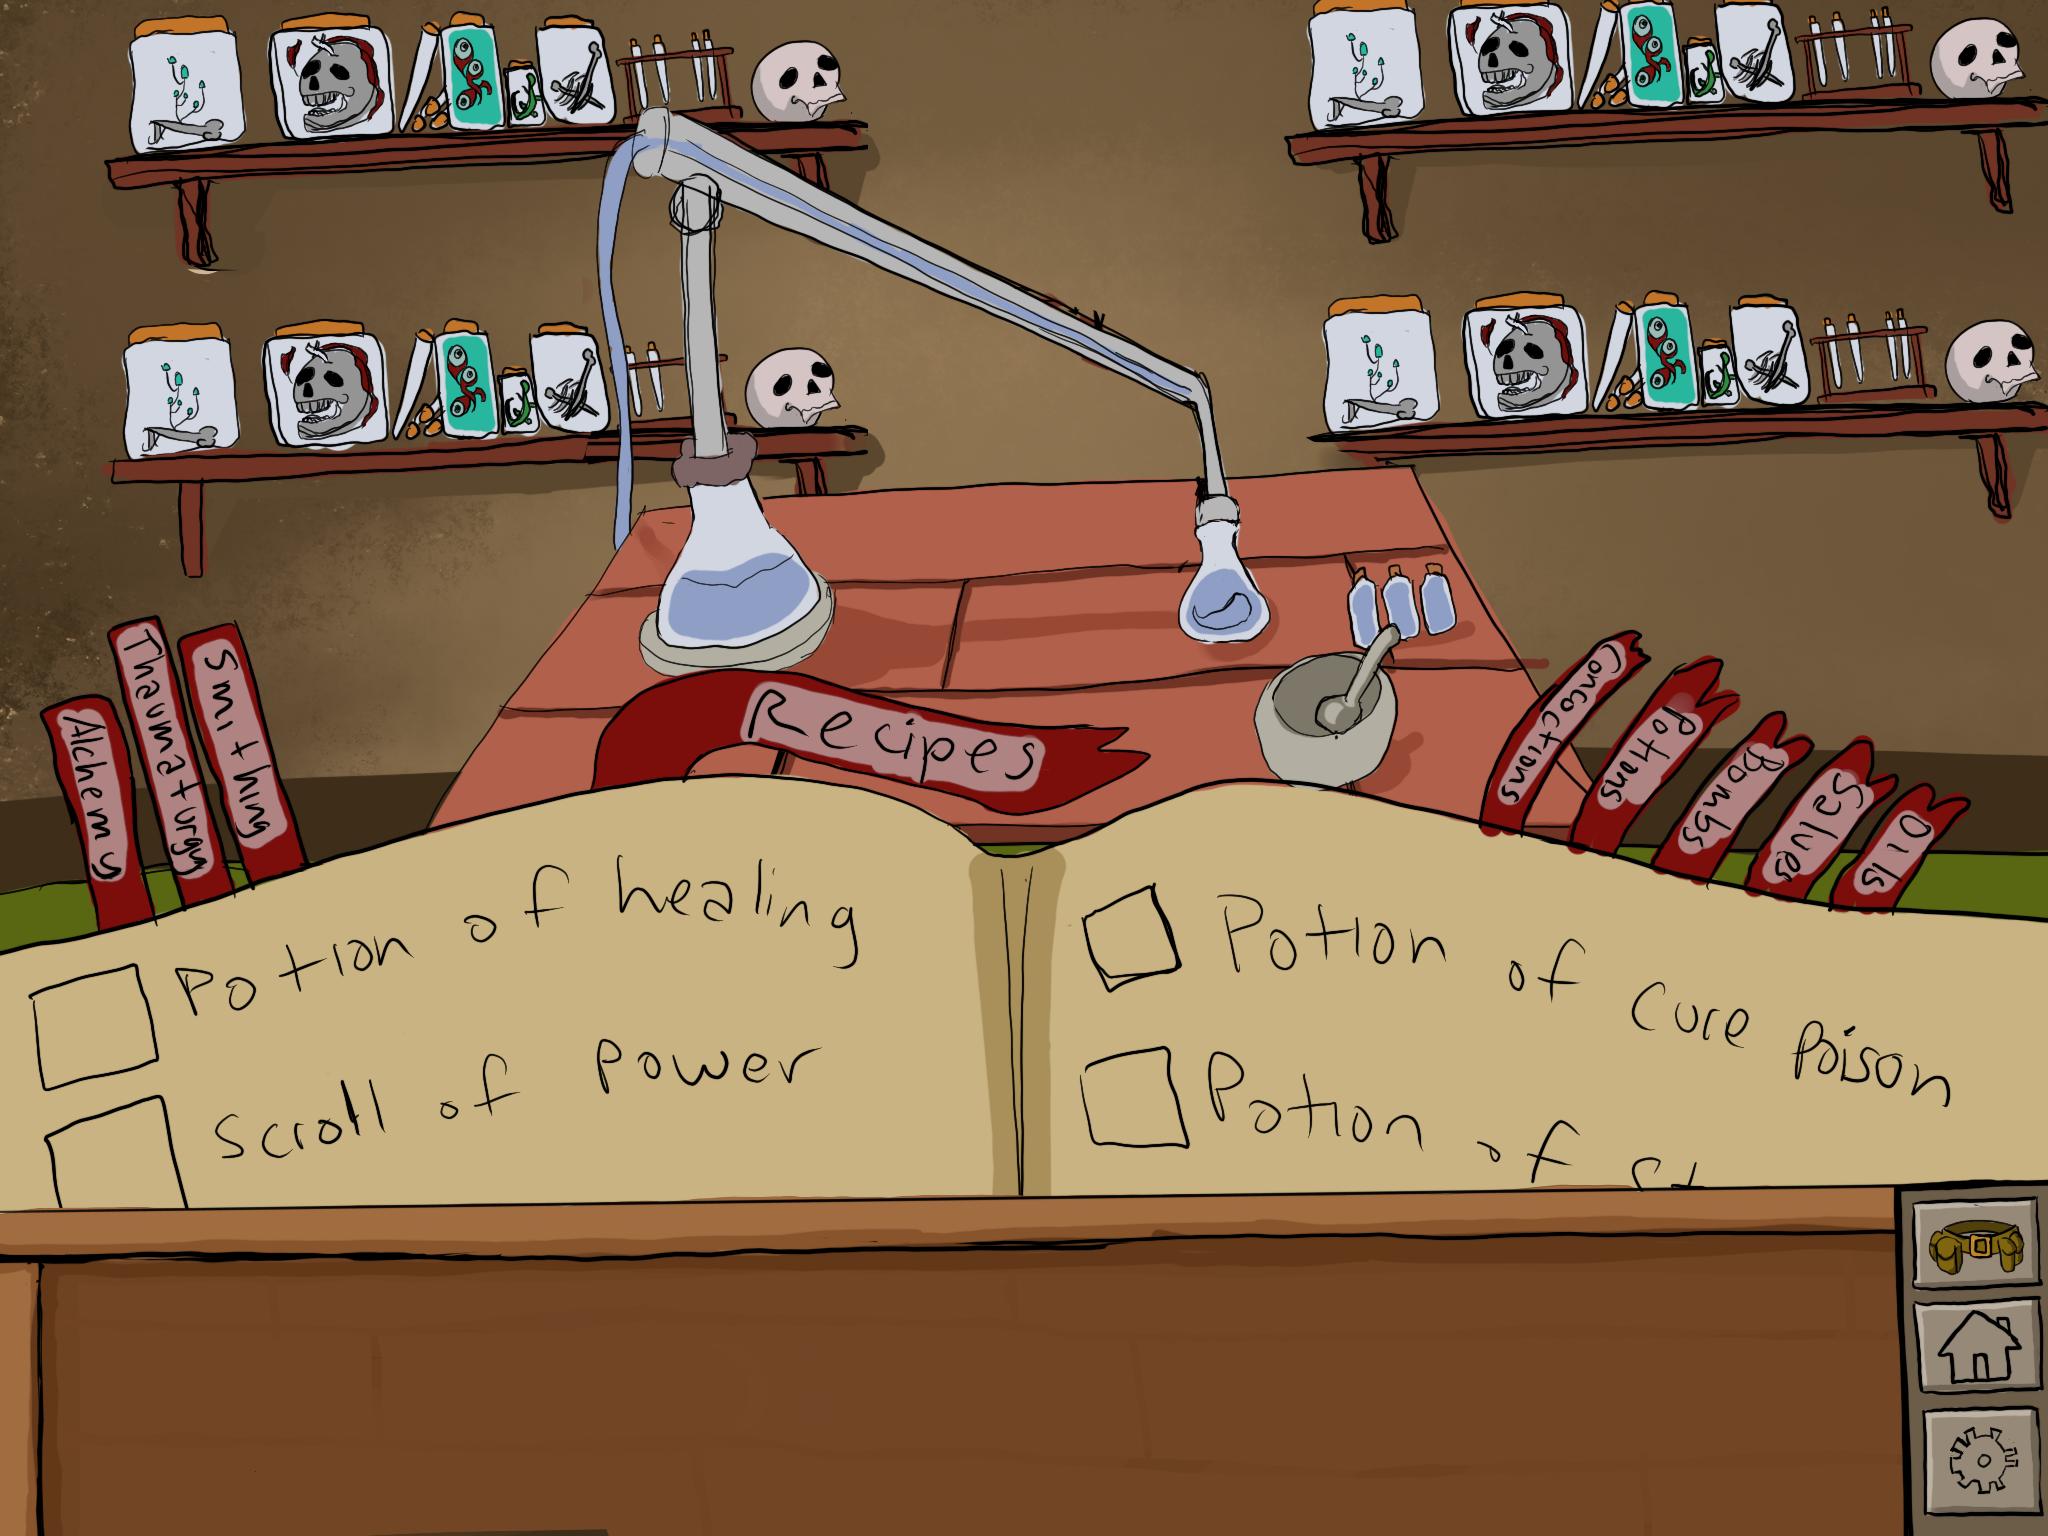 Alchemy
Thaumaturgy
Smithing
Recipes
Concoctions
Potions
Bombs
Salves
Oils
Potion of healing
Scroll of power
Potion of cure poison
Potion of